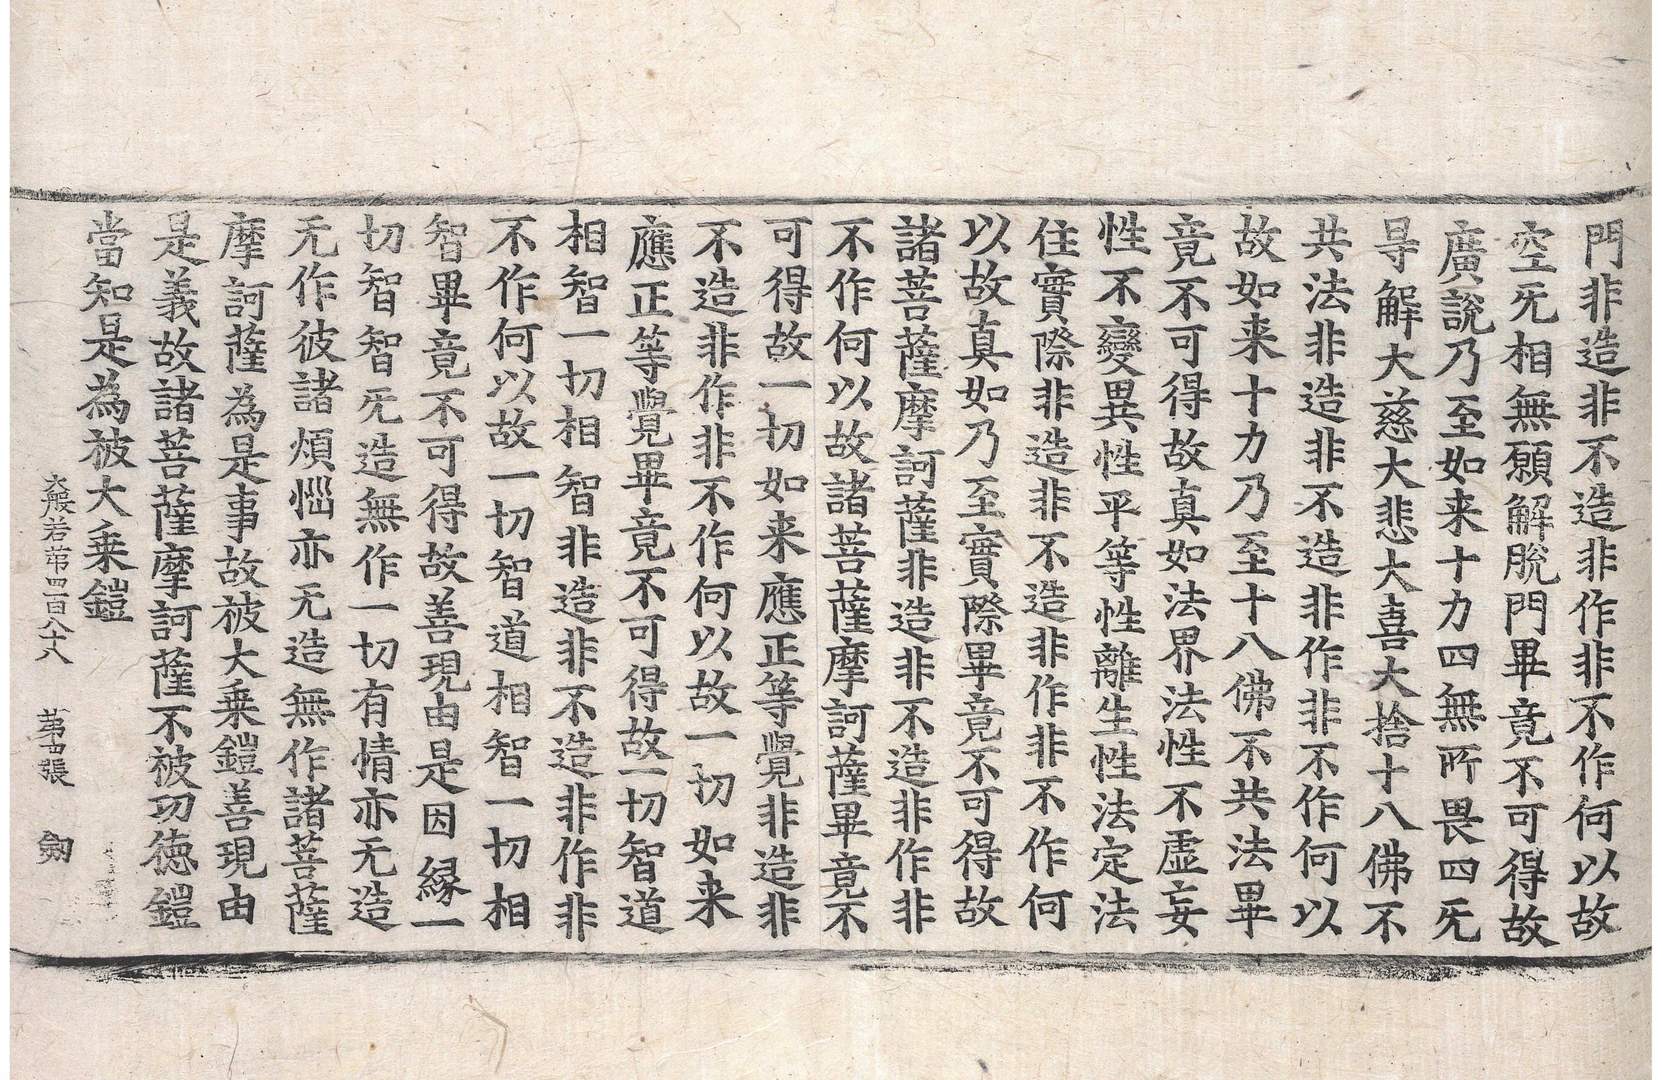 門非造非不造非作非不作何以故
空无相無願解脫門畢竟不可得故
廣說乃至如来十力四無所畏四无
㝵解大慈大悲大喜大捨十八佛不
共法非造非不造非作非不作何以
故如来十力乃至十八佛不共法畢
竟不可得故真如法界法性不虛妄
性不變異性平等性離生性法定法
住實際非造非不造非作非不作何
以故真如乃至實際畢竟不可得故
諸菩薩摩訶薩非造非不造非作非
不作何以故諸菩薩摩訶薩畢竟不
可得故一切如来應正等覺非造非
不造非作非不作何以故一切如来
應正等覺畢竟不可得故一切智道
相智一切相智非造非不造非作非
不作何以故一切智道相智一切相
智畢竟不可得故善現由是因縁一
切智智无造無作一切有情亦无造
无作彼諸煩惱亦无造無作諸菩薩
摩訶薩為是事故被大乗鎧善現由
是義故諸菩薩摩訶薩不被功徳鎧
當知是為被大乗鎧
大般若第四百八十八 第十四張 劒